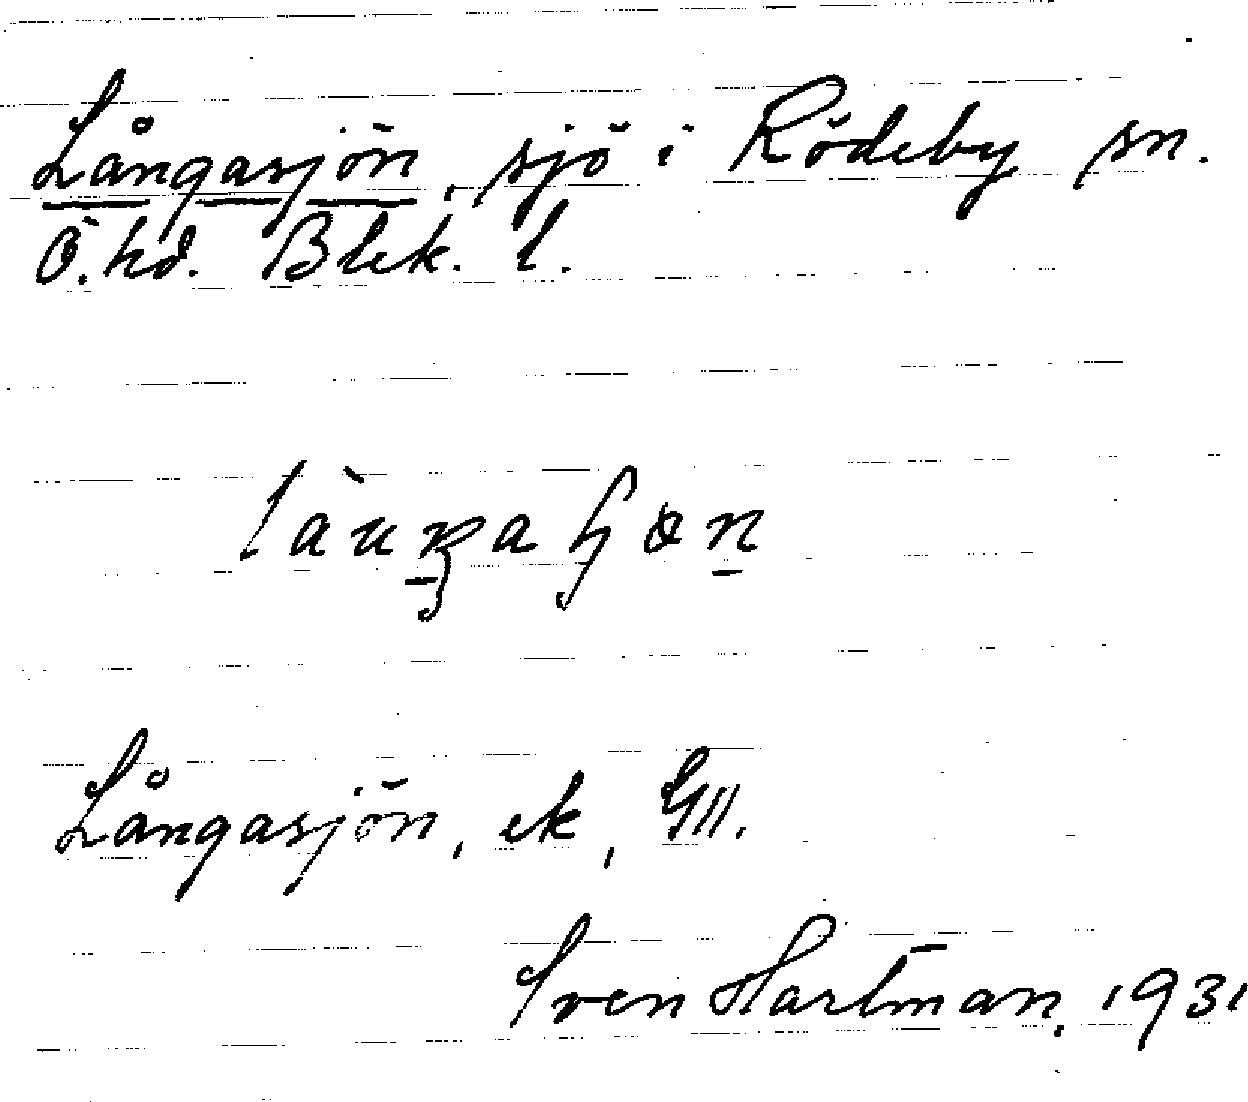 Långasjön, sjö i Rödeby sn.
Ö. hd. Blek. l.
Långasjön, ek,
Sven Hartman, 1931